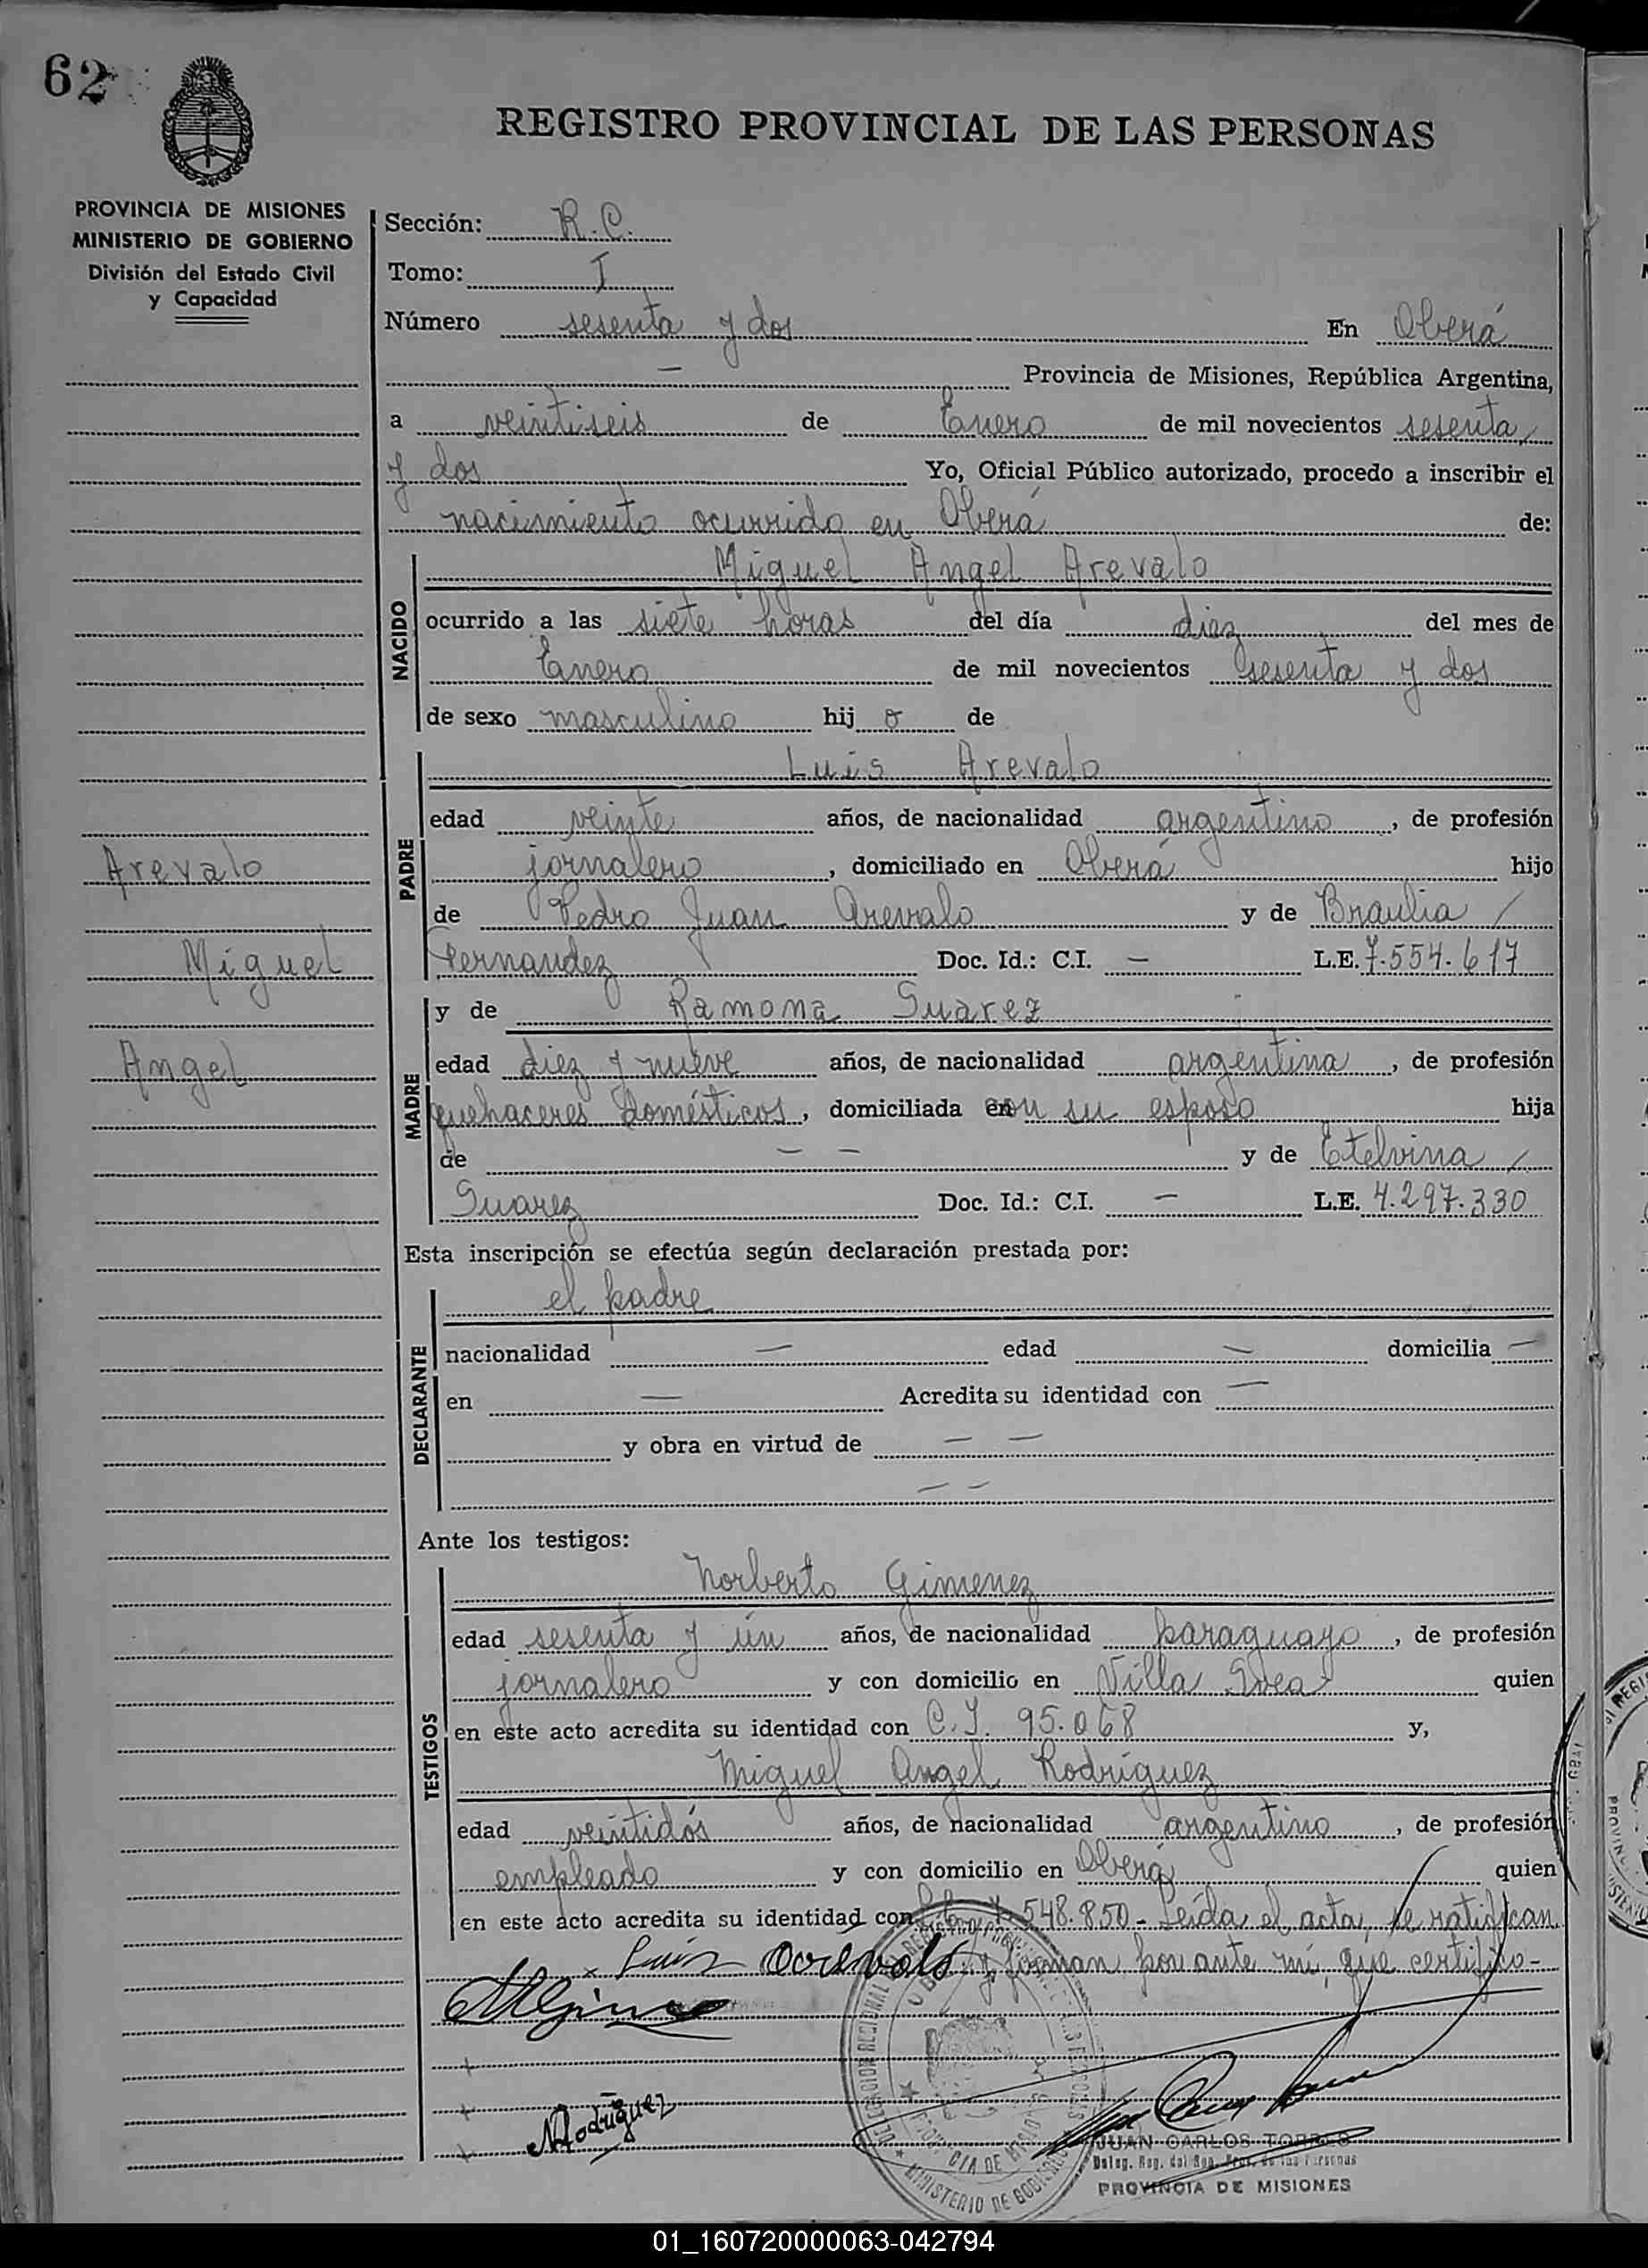 62
REGISTRO PROVINCIAL DE LAS PERSONAS
PROVINCIA DE MISIONES
MINISTERIO DE GOBIERNO
División del Estado Civil
y Capacidad
Arevalo
Miguel
Angel
Sección: R.C.
Tomo: I
Número sesenta y dos En Oberá
— Provincia de Misiones, República Argentina,
a veintiseis de Enero de mil novecientos sesenta
y dos Yo, Oficial Público autorizado, procedo a inscribir el
nacimiento ocurrido en Oberá de:
NACIDO
Miguel Angel Arevalo
ocurrido a las siete horas del día diez del mes de
Enero de mil novecientos sesenta y dos
de sexo masculino hijo de
PADRE
Luis Arevalo
edad veinte años, de nacionalidad argentino, de profesión
jornalero, domiciliado en Oberá hijo
de Pedro Juan Arevalo y de Braulia /
Fernandez Doc. Id.: C.I. — L.E. 7.554.617
MADRE
y de Ramona Suarez
edad diez y nueve años, de nacionalidad argentina, de profesión
quehaceres domésticos, domiciliada con su esposo hija
de — — y de Etelvina /
Suarez Doc. Id.: C.I. — L.E. 4.297.330
Esta inscripción se efectúa según declaración prestada por:
DECLARANTE
el padre
nacionalidad — edad — domicilia —
en — Acredita su identidad con —
y obra en virtud de — —
— —
Ante los testigos:
TESTIGOS
Norberto Gimenez
edad sesenta y ún años, de nacionalidad paraguayo, de profesión
jornalero y con domicilio en Villa Svea quien
en este acto acredita su identidad con C.I. 95.068 y,
Miguel Angel Rodríguez
edad veintidós años, de nacionalidad argentino, de profesión
empleado y con domicilio en Oberá quien
en este acto acredita su identidad con 548.850 - Leída el acta, se ratifican
x Luis Arevalo y firman por ante mí, que certifico-
MRodríguez
JUAN CARLOS TORRES
Deleg. Reg. del Reg. Prov. de las Personas
PROVINCIA DE MISIONES
01_160720000063-042794